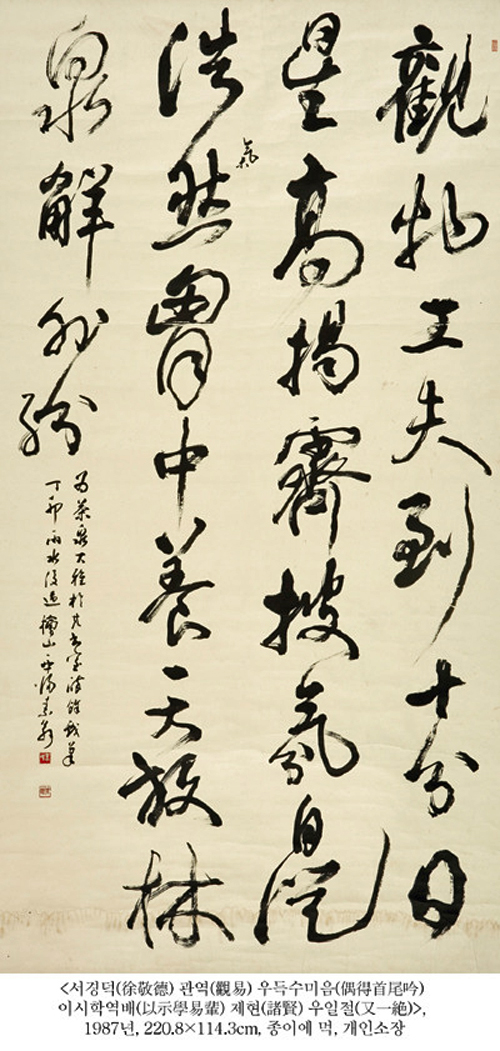 觀物工夫到十分日
星高揭霽披氛自從
浩然氣胷中養天放林
泉解外紛
茶泉大雅於
丁卯雨水後
<서경덕(徐敬德) 관역(觀易) 우득수미음(偶得首尾吟)
이시학역배(以示學易輩) 제현(諸賢) 우일절(又一絶)>,
1987년, 220.8×114.3cm, 종이에 먹, 개인소장